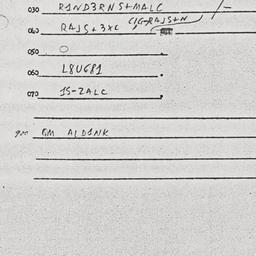 030 R1ND3RNS+MALC
CIG-RAJS+N
040 RAJS+3XC
050 O
060 L8U681
070 1S-ZALC
900 GM A1D1NK